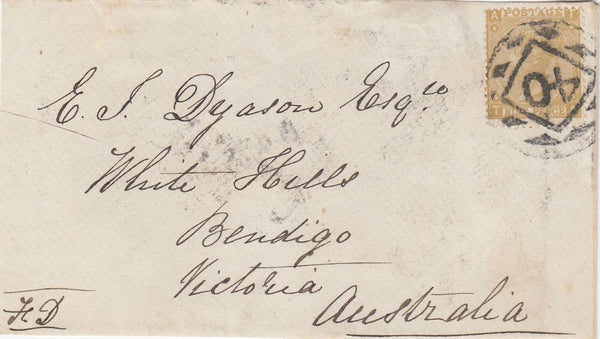 A POSTAGE T
E. J. Dyason Esqre
T NINEPENCE A
White Hills
Bendigo
Victoria
Australia